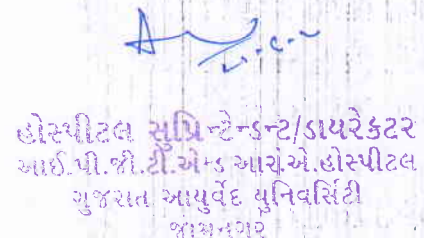 હોસ્પીટલ સુપ્રિન્ટેન્ડન્ટ/ડાયરેકટર
આઈ.પી.જી.ટી.એન્ડ આર.એ.હોસ્પીટલ
ગુજરાત આયુર્વેદ યુનિવર્સિટી
જામનગર